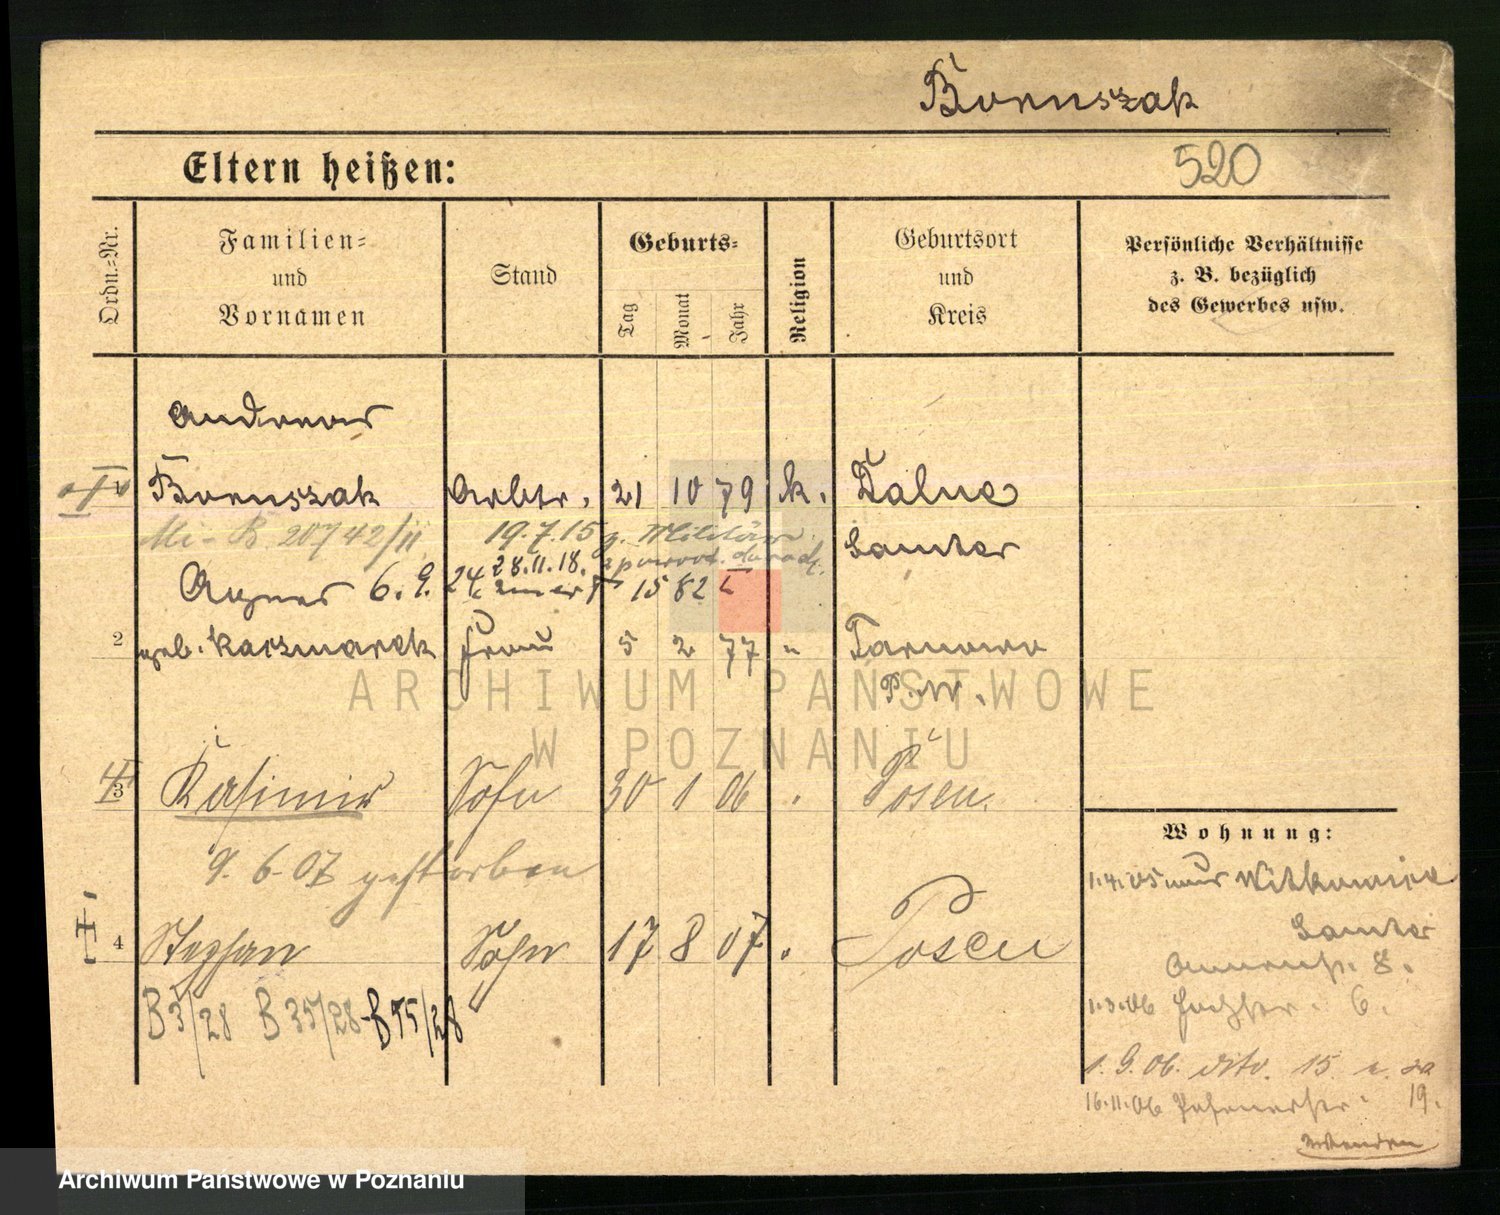 Boruszak
Eltern heißen:
520
Ordn.-Nr.
Familien-
und
Vornamen
Stand
Geburts-
Tag
Monat
Jahr
Religion
Geburtsort
und
Kreis
Persönliche Verhältnisse
z. B. bezüglich
des Gewerbes usw.
Andreas
Boruszak Arbtr. 21 10 79 k.
Samter
20742/II 19.7.15 z. Militär
28.11.18.
Agnes 6. 9. 24 15 82
2 geb. Kaczmarek Frau 5 2 77 " Tarnowo
P. W.
ARCHIWUM PAŃSTWOWE
W POZNANIU
3 Kasimir Sohn 30 1 06 " Posen.
9. 6. 07 gestorben
4 Stephan Sohn 17 8 07 " Posen
B3/28 B 35/28 B 75/28
Wohnung:
1.4.05 aus
Samter
8.
1.3.06 6.
1. 9. 06. dito. 15
16.11.06 19.
wenden
Archiwum Państwowe w Poznaniu